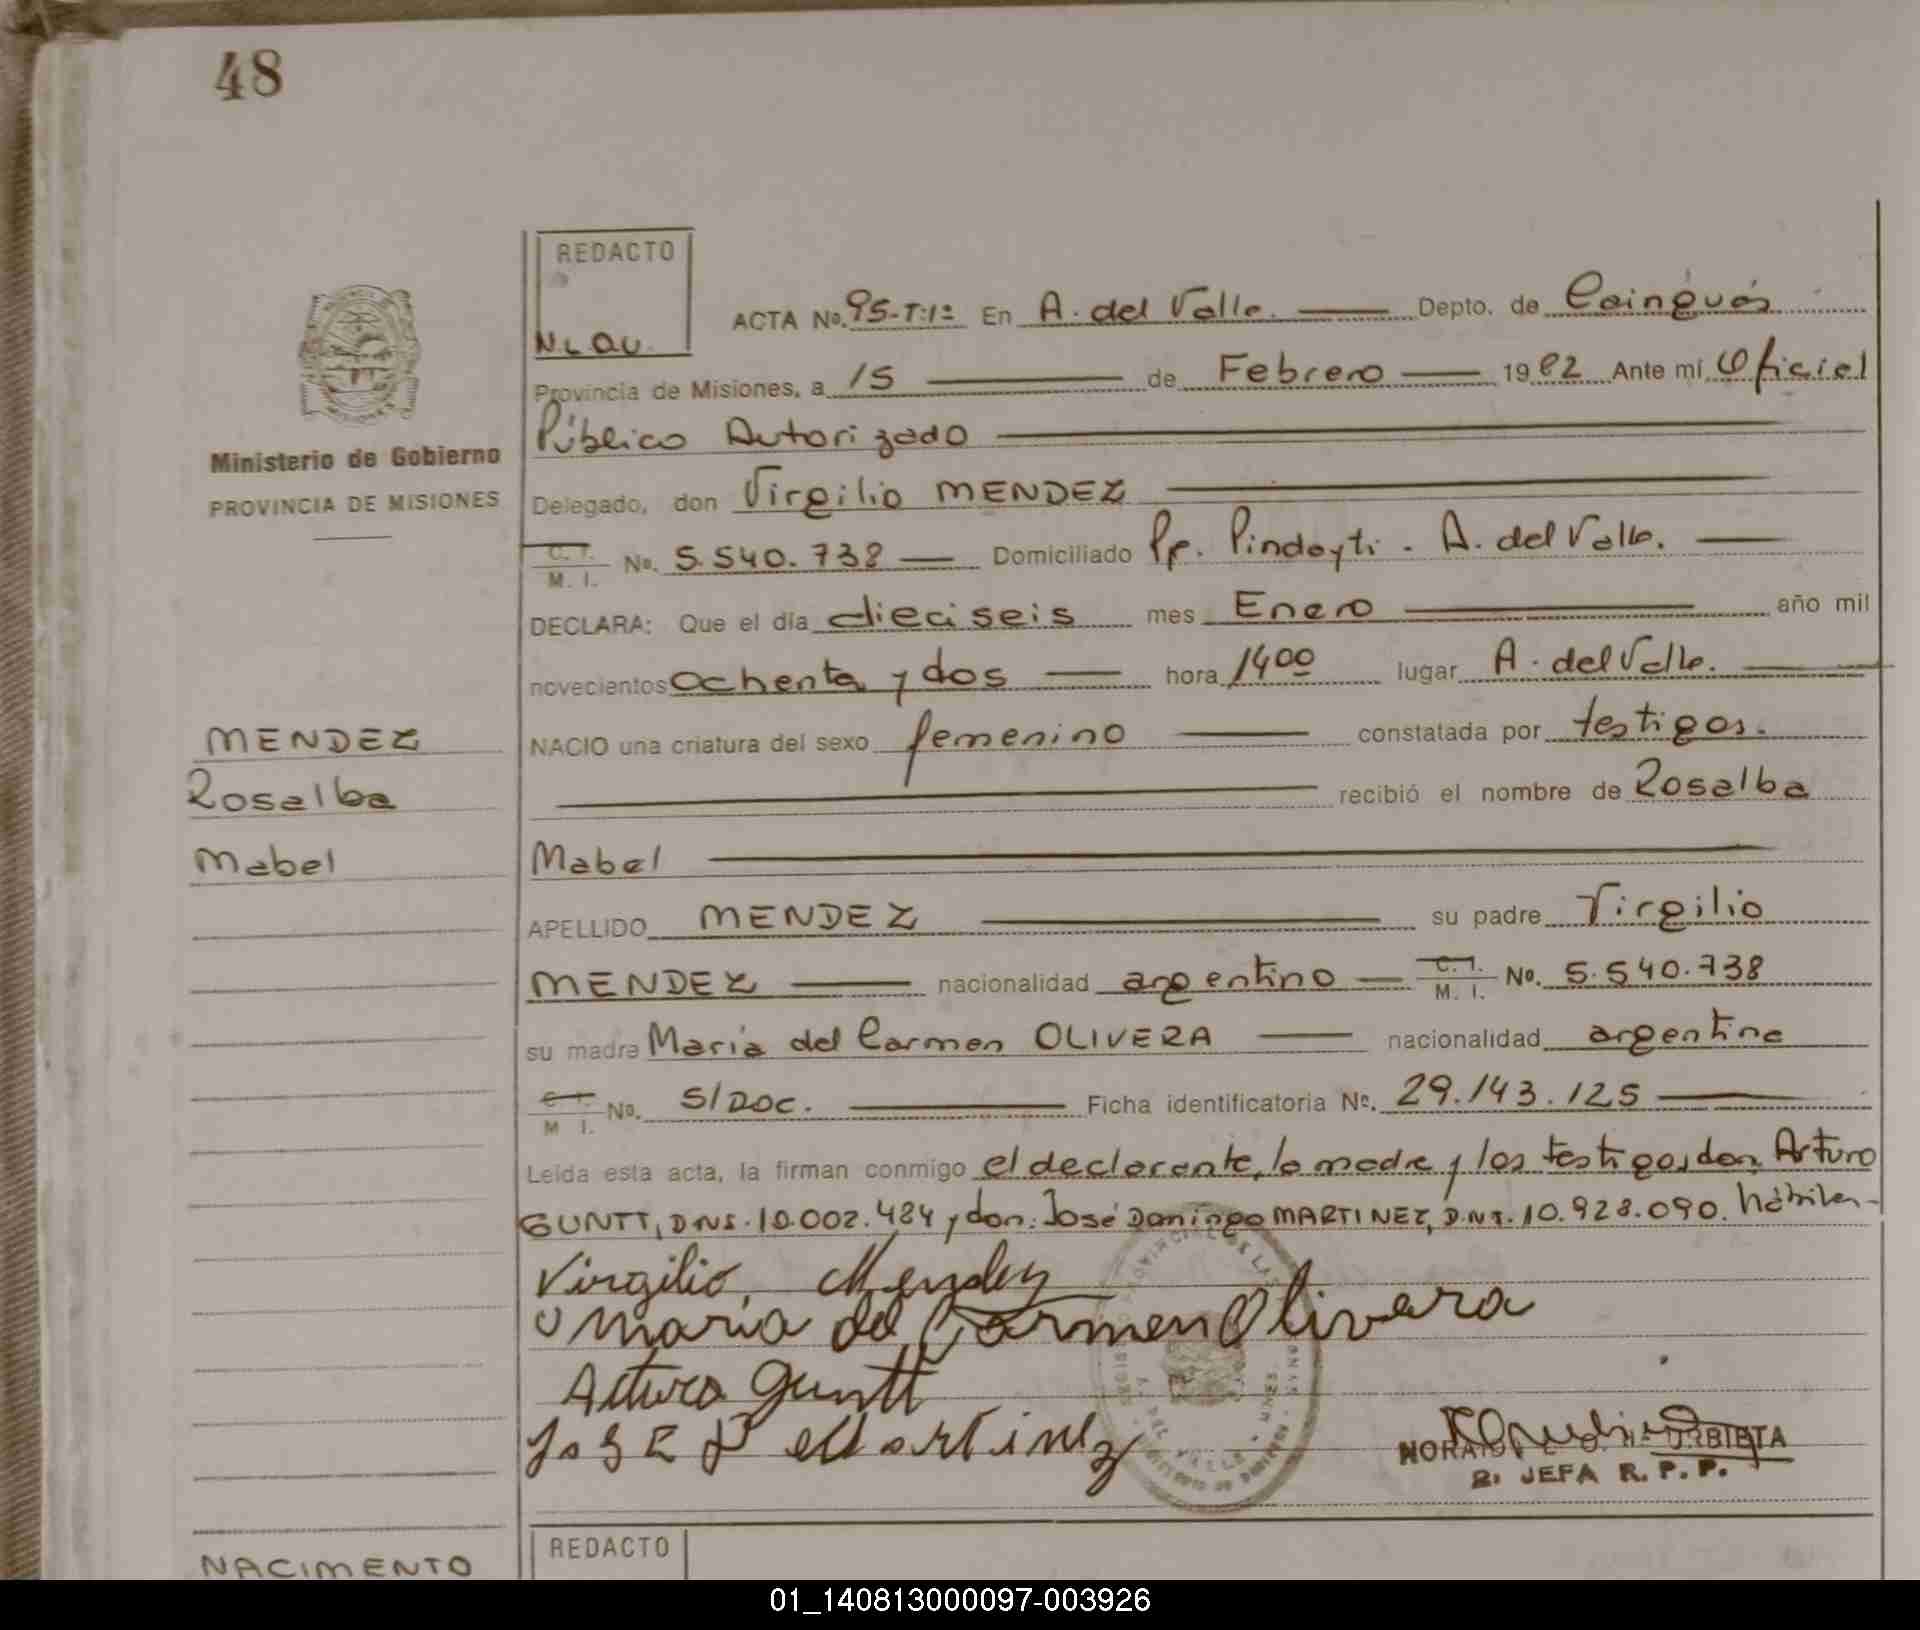 48
REDACTO
N.L.QU.
ACTA No. 95-T:1º En A. del Valle. Depto. de Cainguás
Provincia de Misiones, a 15 de Febrero 1982 Ante mí Oficial
Público Autorizado
Ministerio de Gobierno
PROVINCIA DE MISIONES
Delegado, don Virgilio MENDEZ
C. I. M. I. No. 5.540.738 Domiciliado Pje. Pindayti. A. del Valle.
DECLARA: Que el día dieciseis mes Enero año mil
novecientos ochenta y dos hora 1400 lugar A. del Valle.
MENDEZ
Rosalba
Mabel
NACIO una criatura del sexo femenino constatada por testigos.
recibió el nombre de Rosalba
Mabel
APELLIDO MENDEZ su padre Virgilio
MENDEZ nacionalidad argentino C. I. M. I. No. 5.540.738
su madre María del Carmen OLIVERA nacionalidad argentina
C. I. M. I. No. S/Doc. Ficha identificatoria No. 29.143.125
Leída esta acta, la firman conmigo el declarante, la madre y los testigos, don, Arturo
GUNTT, D.N.I. 10.002.484 y don: José Domingo MARTINEZ, D.N.I. 10.928.090. hábiles-
Virgilio, Mendez
Maria del Carmen Olivera
Arturo Guntt
José D Martinez
NORA URBIETA
2. JEFA R. P. P.
NACIMENTO
REDACTO
01_140813000097-003926